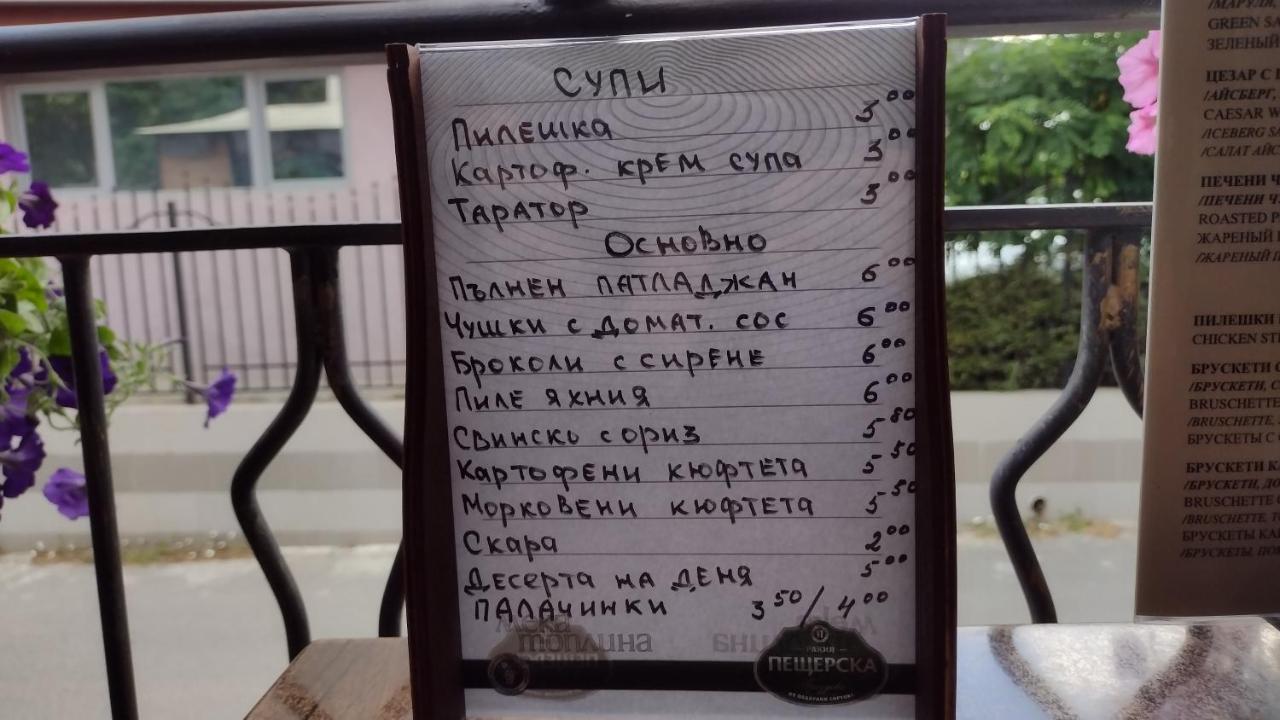 СУПИ
Пилешка 3 00
Картоф. крем супа 3 00
Таратор 3 00
Основно
Пълнен патладжан 6 00
Чушки с домат. сос 6 00
Броколи с сирене 6 00
Пиле яхния 6 00
Свинско с ориз 5 80
Картофени кюфтета 5 50
Морковени кюфтета 5 50
Скара 2 00
Десерта на деня 5 00
Палачинки 3 50 / 4 00
топлина
РАКИЯ
ПЕЩЕРСКА
/МАРУЛЯ,
GREEN SA
ЗЕЛЕНЫЙ
ЦЕЗАР С
/АЙСБЕРГ,
CAESAR W
/ICEBERG S
/САЛАТ АЙС
ПЕЧЕНИ Ч
/ПЕЧЕНИ Ч
ROASTED
ЖАРЕНЫЙ
/ЖАРЕНЫЙ
ПИЛЕШКИ
CHICKEN ST
БРУСКЕТИ
/БРУСКЕТИ, С
BRUSCHETTE
/BRUSCHETTE,
БРУСКЕТЫ С
БРУСКЕТИ К
/БРУСКЕТИ, ДО
BRUSCHETTE
/BRUSCHETTE, Т
БРУСКЕТЫ КА
/БРУСКЕТЫ, ПО